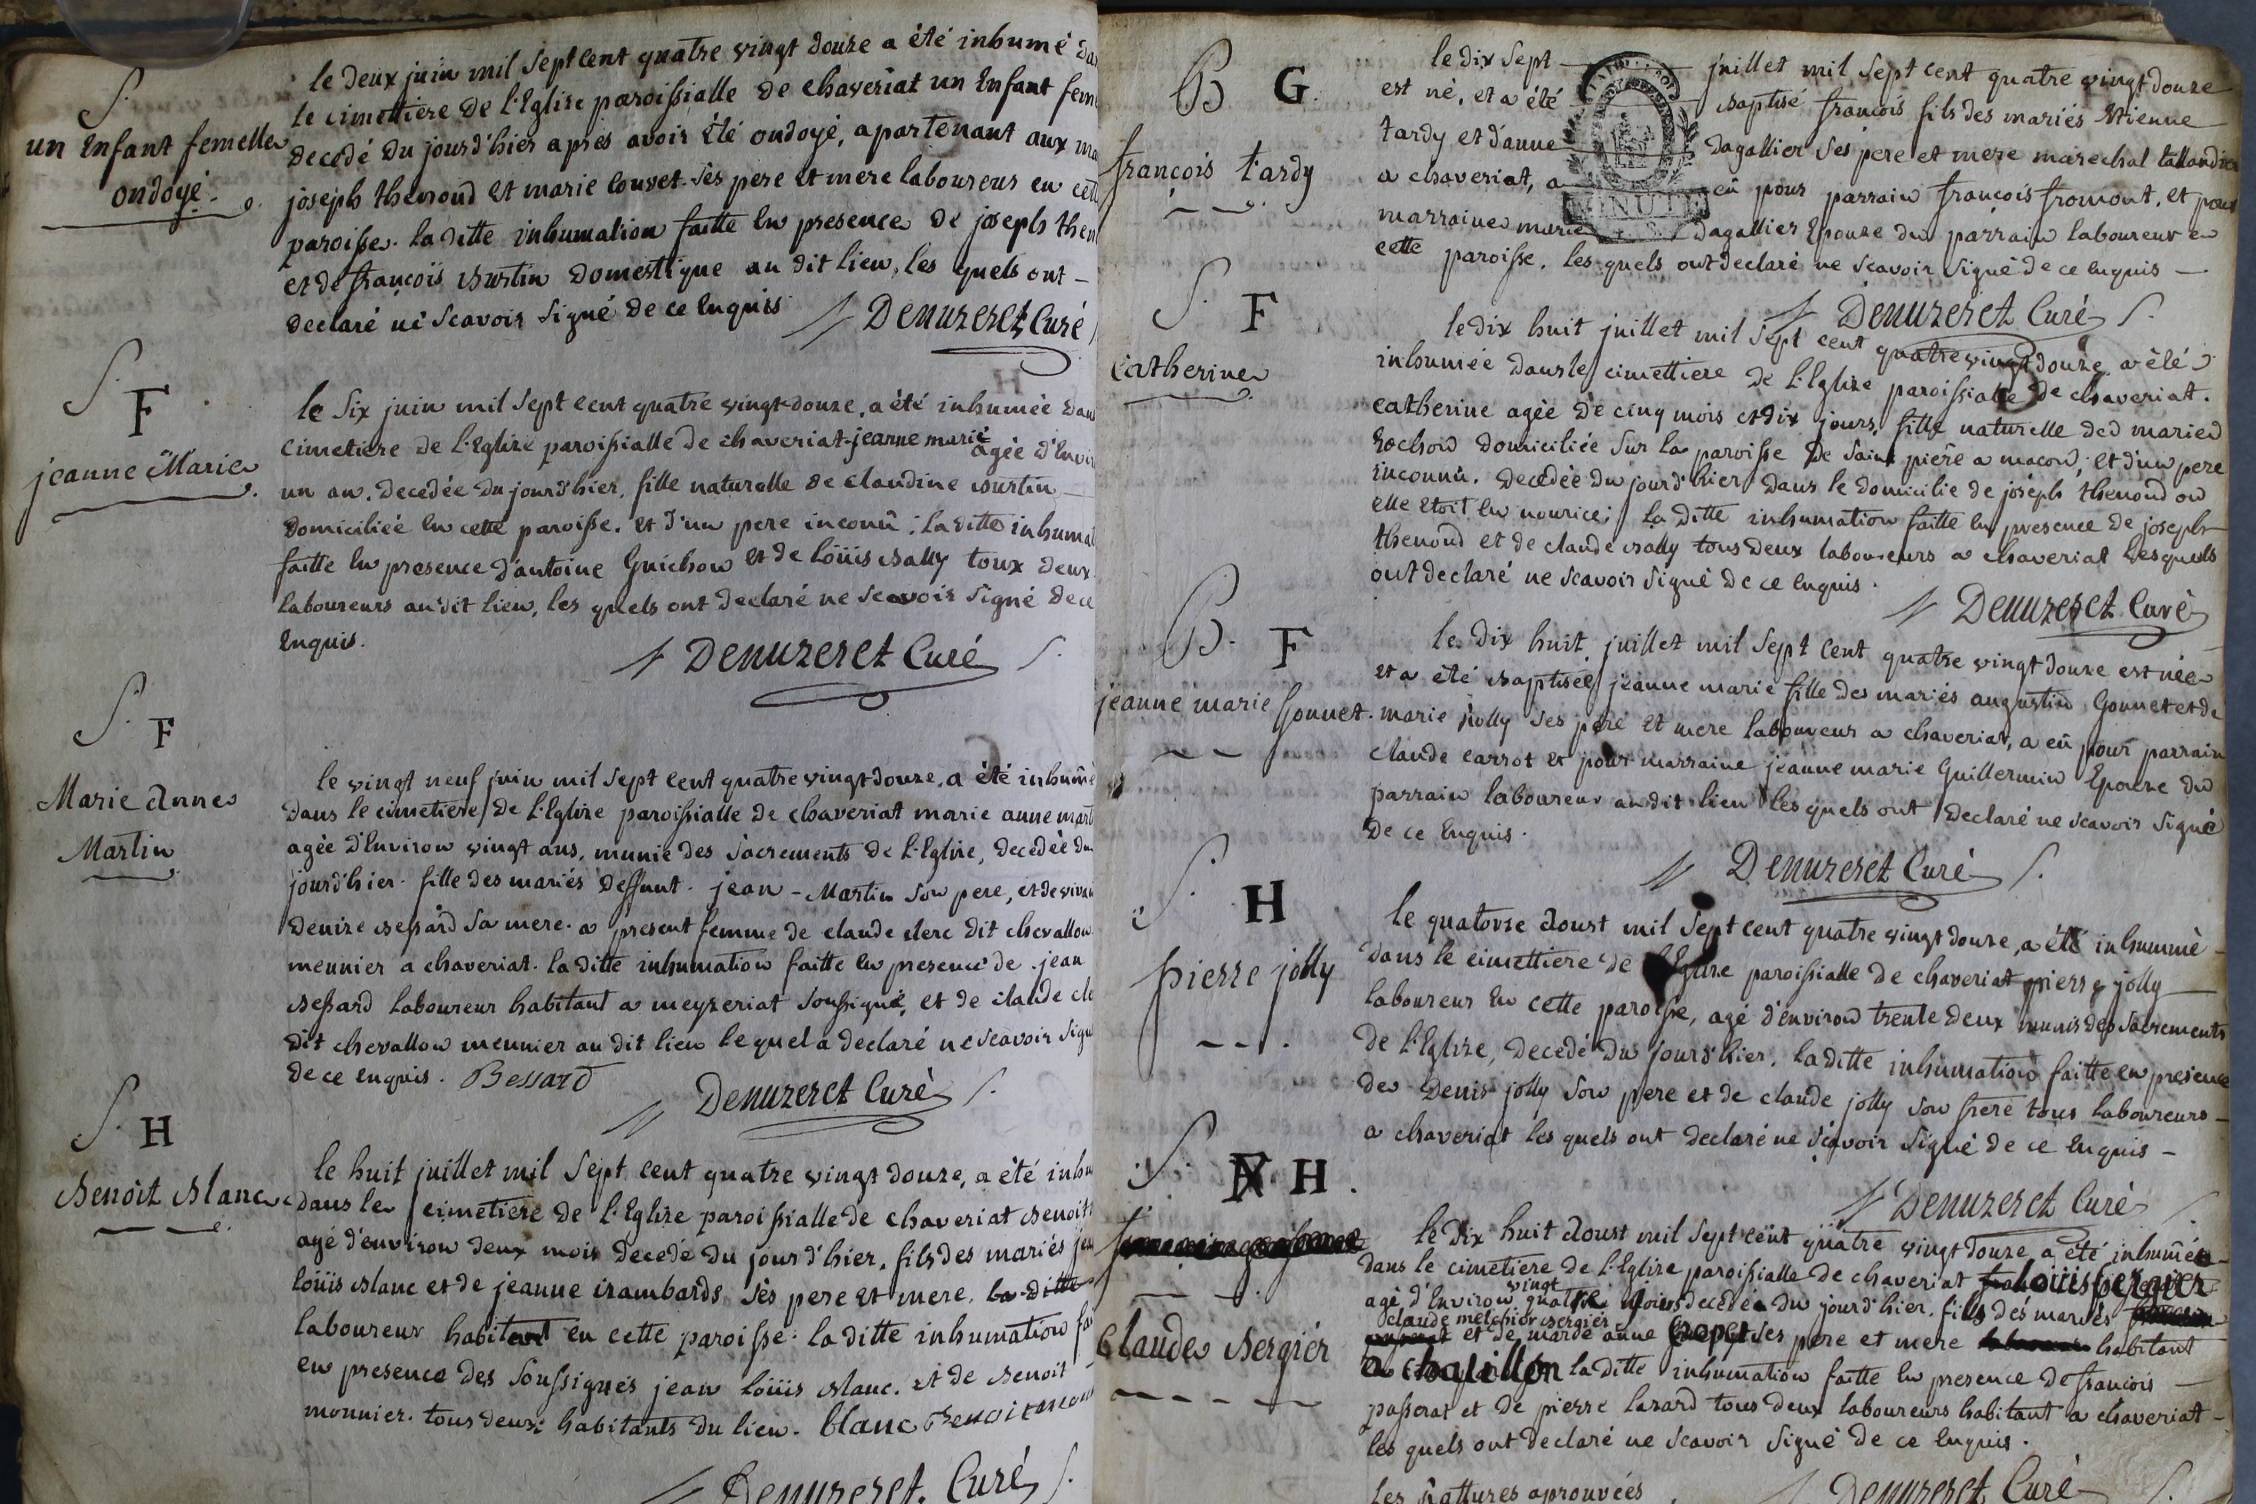 S.
un Enfant femelle
ondoyé.
le deux juin mil sept cent quatre vingt douze a été inhumé da
le cimettiere de l'Eglise paroissialle de chaveriat un Enfant fem
decedé du jourd'hier apres avoir été ondoyé, apartenant aux ma
joseph thenoud et marie couvet ses pere et mere laboureurs en cett
paroisse. la ditte inhumation faitte en presence de joseph then
et de françois burtin domestique au dit lieu, les quels ont -
declaré ne scavoir signé de ce enquis
Denuzeret Curé
S.
F
jeanne Marie
le six juin mil sept cent quatre vingt douze, a été inhumée dans
cimetiere de l'Eglise paroissialle de chaveriat jeanne marie agée d'envir
un an. decedée du jourd'hier, fille naturelle de claudine burtin
domiciliée en cette paroisse. et d'un pere inconû; la ditte inhumat
faitte en presence d'antoine Guichon et de loüis bally toux deux
laboureurs au dit lieu, les quels ont declaré ne scavoir signé de ce
enquis.
Denuzeret Curé S.
S. F
Marie Anne
Martin
le vingt neuf juin mil sept cent quatre vingt douze, a été inhumé
dans le cimetiere de l'Eglise paroissialle de chaveriat marie anne mart
agée d'environ vingt ans, munie des sacrements de l'Eglise, decedée du
jourd'hier. fille des mariés deffunt. jean - Martin son pere, et de vivan
denize bessard sa mere. a present femme de claude clerc dit chevallon
meunier a chaveriat. la ditte inhumation faitte en presence de jean
bessard laboureur habitant a meyzeriat soussigné, et de claude cle
dit chevallon meunier au dit lieu le quel a declaré ne scavoir sign
de ce enquis. Bessard
Denuzeret Curé S.
S. H
Benoit blanc
le huit juillet mil sept cent quatre vingt douze, a été inhu
dans le cimetiere de l'Eglise paroissialle de chaveriat benoit
agé d'environ deux mois decedé du jourd'hier, fils des mariés jea
loüis blanc et de jeanne crambards ses pere et mere. la ditte
laboureur habitant en cette paroisse. la ditte inhumation fai
en presence des soussignés jean loüis blanc. et de benoit
monnier. tous deux habitants du lieu. blanc Benoit mon
Denuzeret. Curé S.
B G.
françois tardy
le dix sept juillet mil sept cent quatre vingt douze
est né, et a été baptisé françois fils des mariés Etienne
tardy et d'anne dagallier ses pere et mere marechal tallandier
a chaveriat, a eû pour parrain françois fromont, et pour
MINUTE
marraine marie dagallier Epouze du parrain laboureur en
cette paroisse. les quels ont declaré ne scavoir signé de ce enquis -
Denuzeret Curé S.
S. F
Catherine
le dix huit juillet mil sept cent quatre vingt douze a été
inhumée dans le cimettiere de l'Eglise paroissialle de chaveriat.
catherine agée de cinq mois et dix jours, fille naturelle de marie
Rochon domiciliée sur la paroisse de saint piere a macon, et d'un pere
inconnû. decedée du jourd'hier dans le domicilie de joseph thenoud ou
elle etoit en nourice; la ditte inhumation faitte en presence de joseph
thenoud et de claude bally tous deux laboureurs a chaveriat lesquels
ont declaré ne scavoir signé de ce enquis.
Denuzeret Curé
B. F
jeanne marie Gonnet.
le dix huit juillet mil sept cent quatre vingt douze est née
et a été baptisée jeanne marie fille des mariés augustin Gonnet et de
marie jolly ses pere et mere laboureur a chaveriat, a eû pour parrain
claude carrot et pour marraine jeanne marie Guillermin Epouze du
parrain laboureur au dit lieu les quels ont declaré ne scavoir signé
de ce enquis.
Denuzeret Curé S.
S. H
pierre jolly
le quatorze Aoust mil sept cent quatre vingt douze, a été inhummé
dans le cimettiere de l'Eglise paroissialle de chaveriat pierre jolly
laboureur en cette paroisse, agé d'environ trente deux munis des sacrements
de l'Eglise, decedé du jourd'hier. la ditte inhumation faitte en presence
de Denis jolly son pere et de claude jolly son frere tous laboureurs
a chaveriat les quels ont declaré ne scavoir signé de ce enquis -
Denuzeret Curé
S. H.
Claude bergier
le dix huit Aoust mil sept cent quatre vingt douze a été inhumé
dans le cimetiere de l'Eglise paroissialle de chaveriat loüis bergier
agé d'environ vingt quatre mois decedé du jourd'hier. fils des mariés
claude melchior bergier et de marde anne ses pere et mere habitant
a chatillon la ditte inhumation faitte en presence de françois
passerat et de pierre lazard tous deux laboureurs habitant a chaveriat
les quels ont declaré ne scavoir signé de ce enquis.
les rattures aprouvées
Denuzeret Curé